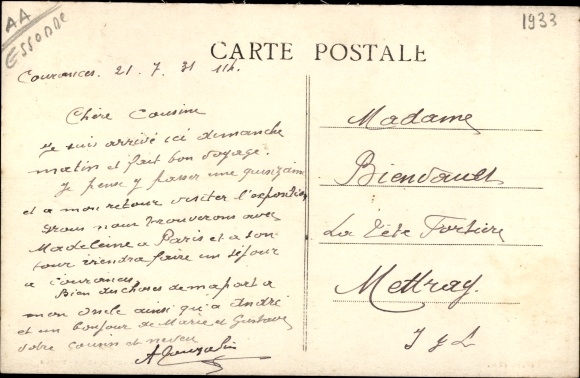 AA
ESSONNE
1933
CARTE POSTALE
Courances. 21.7.31 11h.
Chère Cousine
Je suis arrivé ici dimanche
matin et fait bon voyage.
Je pense y passer une quinzaine
et a mon retour visiter l'exposition
nous nous trouverons avec
Madeleine a Paris et a son
tour viendra faire un séjour
a Courances.
Bien des choses de ma part a
mon Oncle ainsi qu'a André
et un bonjour de Marie et Gustave
votre cousin et neveu
Madame
Biendault
La Tête Fortière
Mettray.
I y L